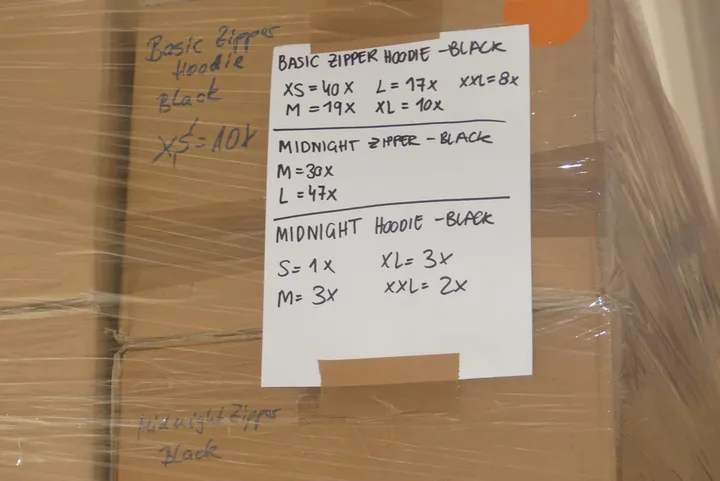 Basic Zipper
Hoodie
Black
XS=10x
BASIC ZIPPER HOODIE -BLACK
XS=40x L=17x XXL=8x
M=19x XL=10x
MIDNIGHT ZIPPER -BLACK
M=30x
L=47x
MIDNIGHT HOODIE -BLACK
S=1x XL=3x
M=3x XXL=2x
Midnight Zipper
Black